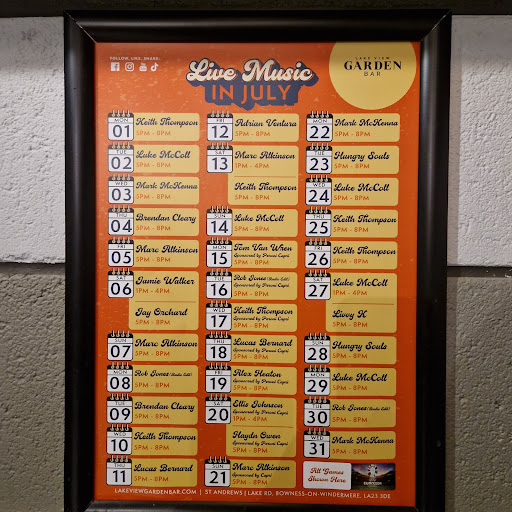 FOLLOW, LIKE, SHARE:
Live Music
IN JULY
LAKE VIEW
GARDEN
BAR
MON
01
Keith Thompson
5PM - 8PM
TUE
02
Luke McColl
5PM - 8PM
WED
03
Mark McKenna
5PM - 8PM
THU
04
Brendan Cleary
5PM - 8PM
FRI
05
Marc Atkinson
5PM - 8PM
SAT
06
Jamie Walker
1PM - 4PM
Jay Orchard
5PM - 8PM
SUN
07
Marc Atkinson
5PM - 8PM
MON
08
Rob Jones
5PM - 8PM
TUE
09
Brendan Cleary
5PM - 8PM
WED
10
Keith Thompson
5PM - 8PM
THU
11
Lucas Bernard
5PM - 8PM
FRI
12
Adrian Ventura
5PM - 8PM
SAT
13
Marc Atkinson
1PM - 4PM
Keith Thompson
5PM - 8PM
SUN
14
Luke McColl
5PM - 8PM
MON
15
Tom Van Wren
Sponsored by Peroni Capri
5PM - 8PM
TUE
16
Rob Jones
Sponsored by Peroni Capri
5PM - 8PM
WED
17
Keith Thompson
Sponsored by Peroni Capri
5PM - 8PM
THU
18
Lucas Bernard
Sponsored by Peroni Capri
5PM - 8PM
FRI
19
Alex Heaton
Sponsored by Peroni Capri
5PM - 8PM
SAT
20
Ellis Johnson
Sponsored by Peroni Capri
1PM - 4PM
Haydn Owen
Sponsored by Peroni Capri
5PM - 8PM
SUN
21
Marc Atkinson
Sponsored by Peroni Capri
5PM - 8PM
MON
22
Mark McKenna
5PM - 8PM
TUE
23
Hungry Souls
5PM - 8PM
WED
24
Luke McColl
5PM - 8PM
THU
25
Keith Thompson
5PM - 8PM
FRI
26
Keith Thompson
5PM - 8PM
SAT
27
Luke McColl
1PM - 4PM
Livvy K
5PM - 8PM
SUN
28
Hungry Souls
5PM - 8PM
MON
29
Luke McColl
5PM - 8PM
TUE
30
Rob Jones
5PM - 8PM
WED
31
Mark McKenna
5PM - 8PM
All Games
Shown Here
LAKEVIEWGARDENBAR.COM | ST ANDREWS | LAKE RD, BOWNESS-ON-WINDERMERE, LA23 3DE